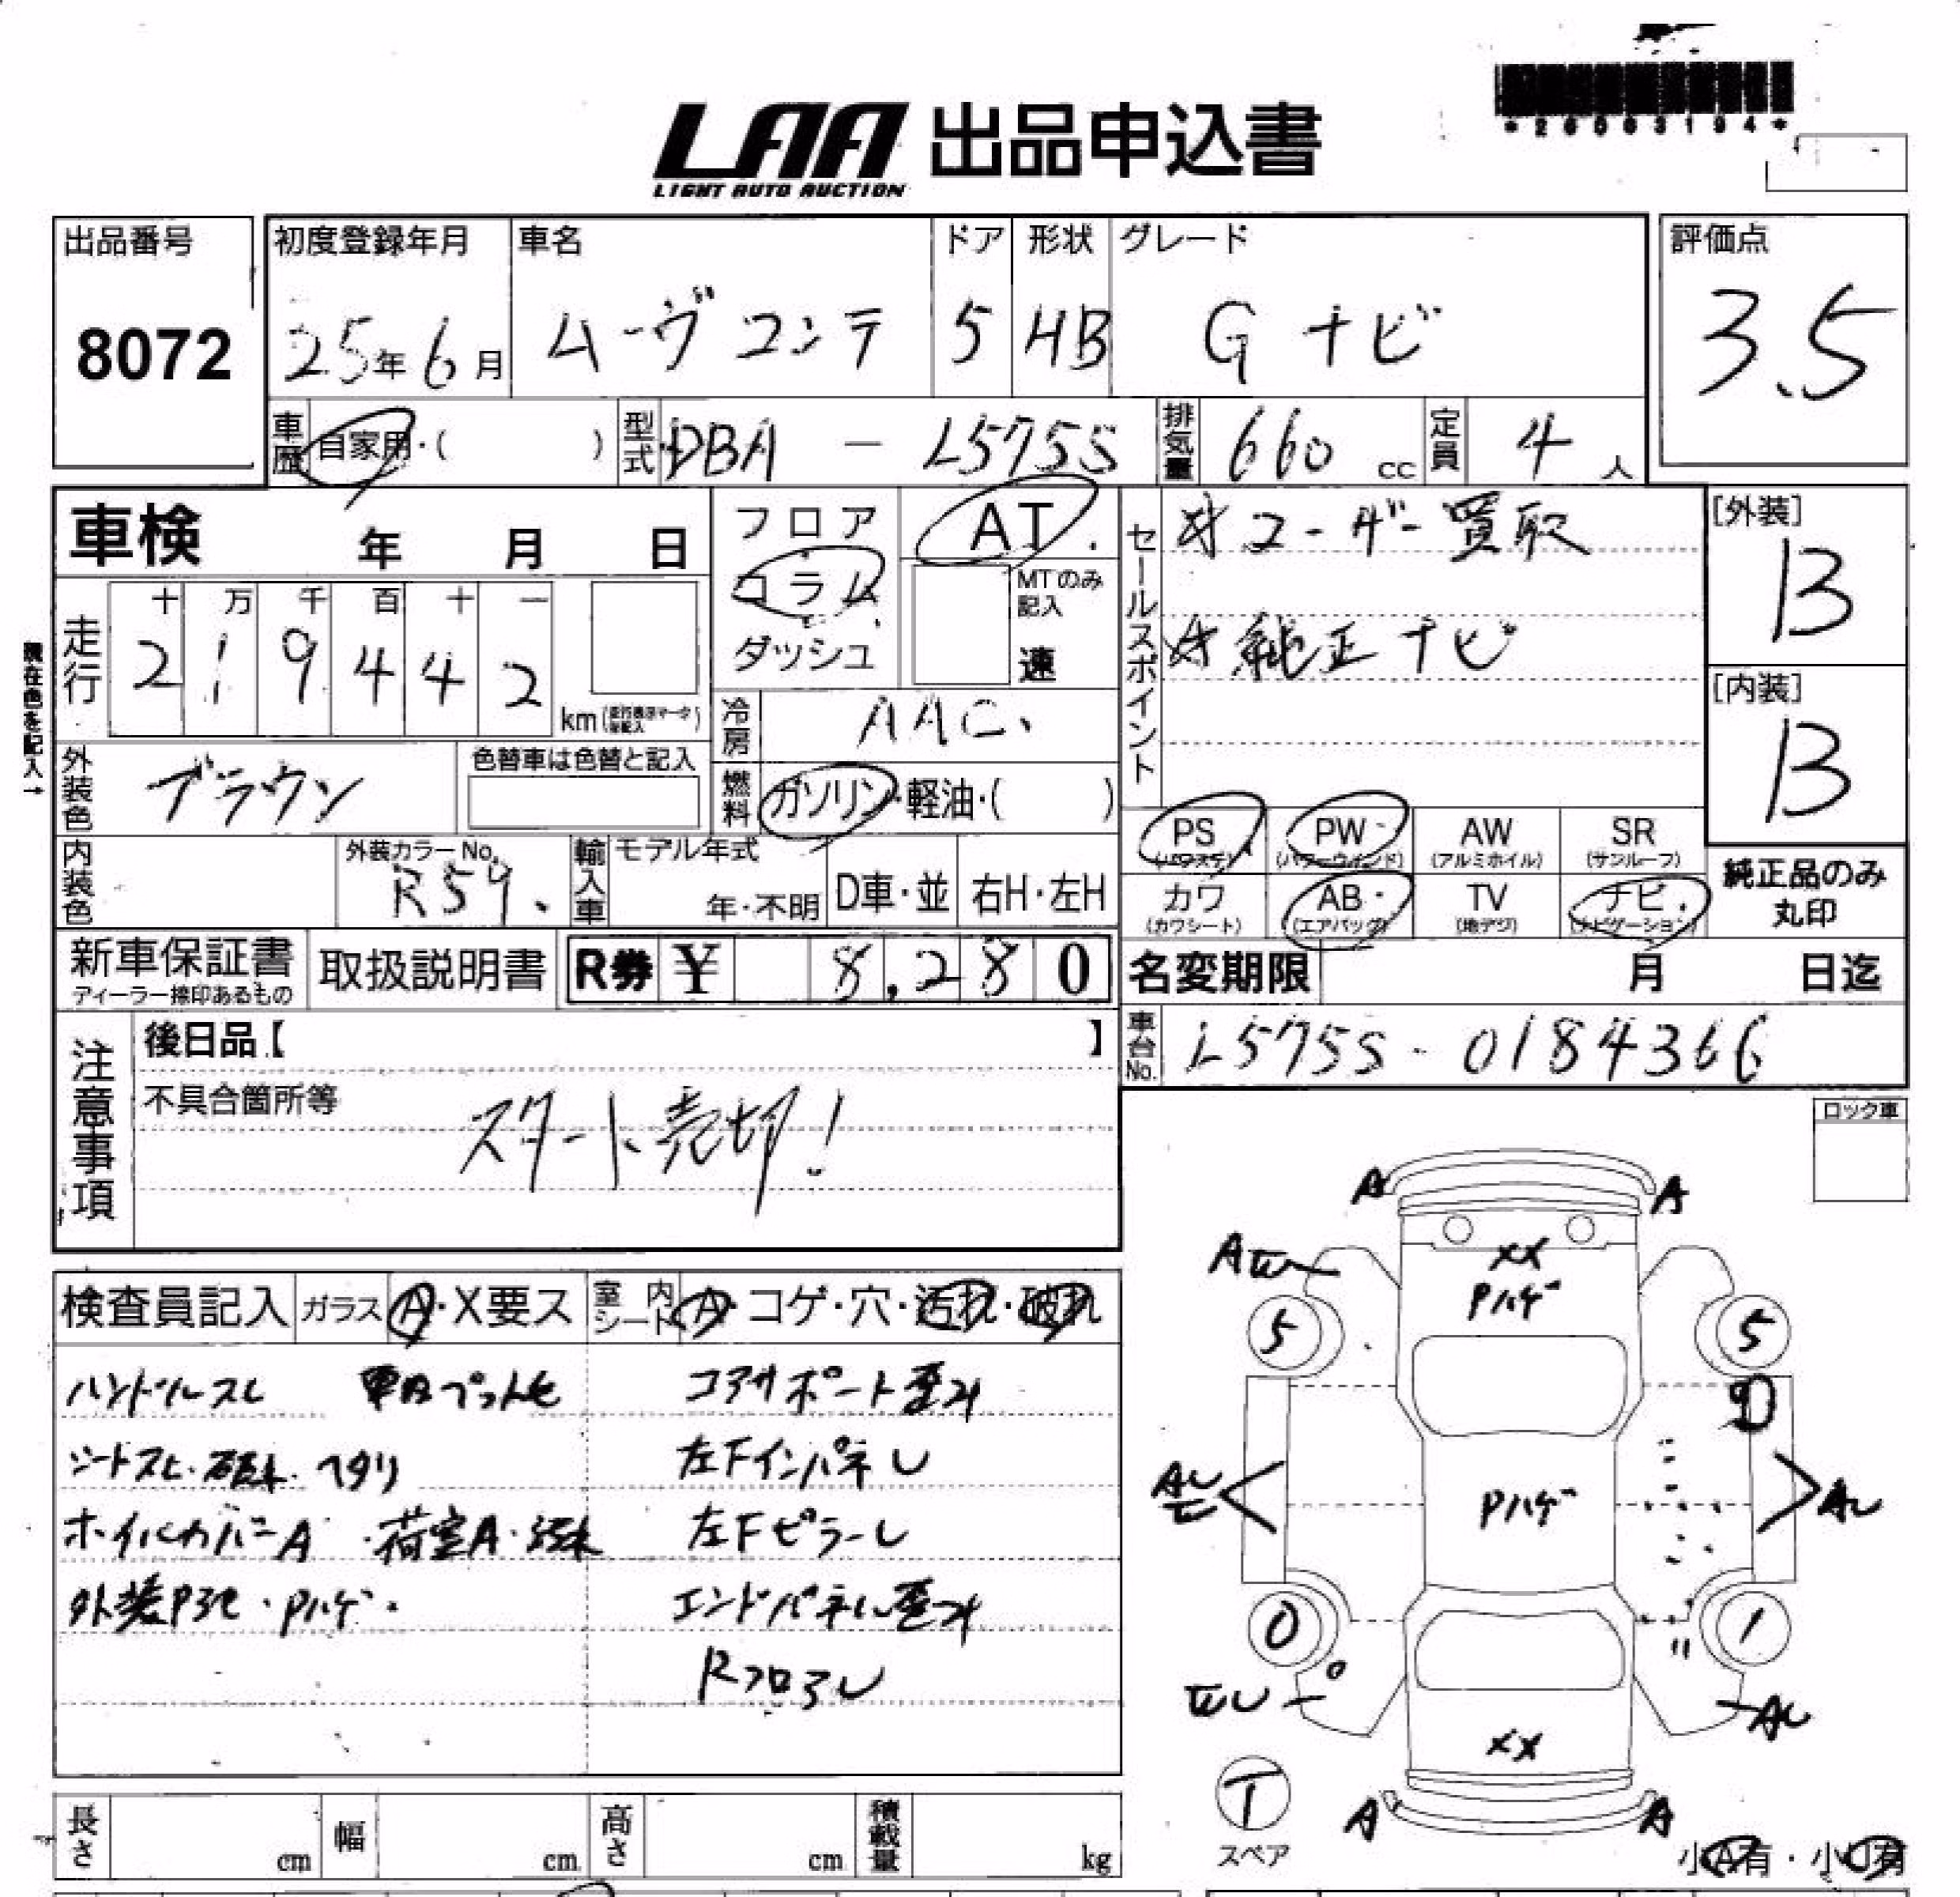 *26063194*
LAA 出品申込書
LIGHT AUTO AUCTION
出品番号
8072
初度登録年月
25年6月
車名
ムーヴコンテ
ドア
5
形状
HB
グレード
G ナビ
評価点
3.5
車歴 自家用・( )
型式 DBA - L575S
排気量 660 cc
定員 4人
車検 年 月 日
フロア
コラム
ダッシュ
AT
MTのみ記入
速
セールスポイント
ユーザー買取
純正ナビ
[外装]
B
[内装]
B
現在色を記入→
走行
十 万 千 百 十 一
2 1 9 4 4 2
km
冷房 AAC
燃料 ガソリン・軽油・( )
外装色 ブラウン
色替車は色替と記入
内装色
外装カラーNo.
R59
輸入車
モデル年式
年・不明
D車・並
右H・左H
PS
(パワステ)
PW
(パワーウィンド)
AW
(アルミホイル)
SR
(サンルーフ)
カワ
(カワシート)
AB
(エアバッグ)
TV
(地デジ)
ナビ
(ナビゲーション)
純正品のみ
丸印
新車保証書
ディーラー捺印あるもの
取扱説明書
R券 ¥ 8,280
名変期限 月 日迄
車台No. L575S-0184366
注意事項
後日品【 】
不具合箇所等
スタート売切!
ロック車
検査員記入
ガラス A・X要ス
室内シート A・コゲ・穴・汚れ・破れ
ハンドルスレ
シートスレ・破れ・ヘタリ
ホイルカバーA ・荷室A・汚れ
外装 ・Pハゲ・
コアサポート歪み
左FインパネU
左FピラーU
エンドパネル歪み
RフロアU
A
A
A
XX
Pハゲ
5
5
D
AU
Pハゲ
AU
0
1
U
AU
XX
T
スペア
A
A
小A有・小U有
長さ cm
幅 cm
高さ cm
積載量 kg